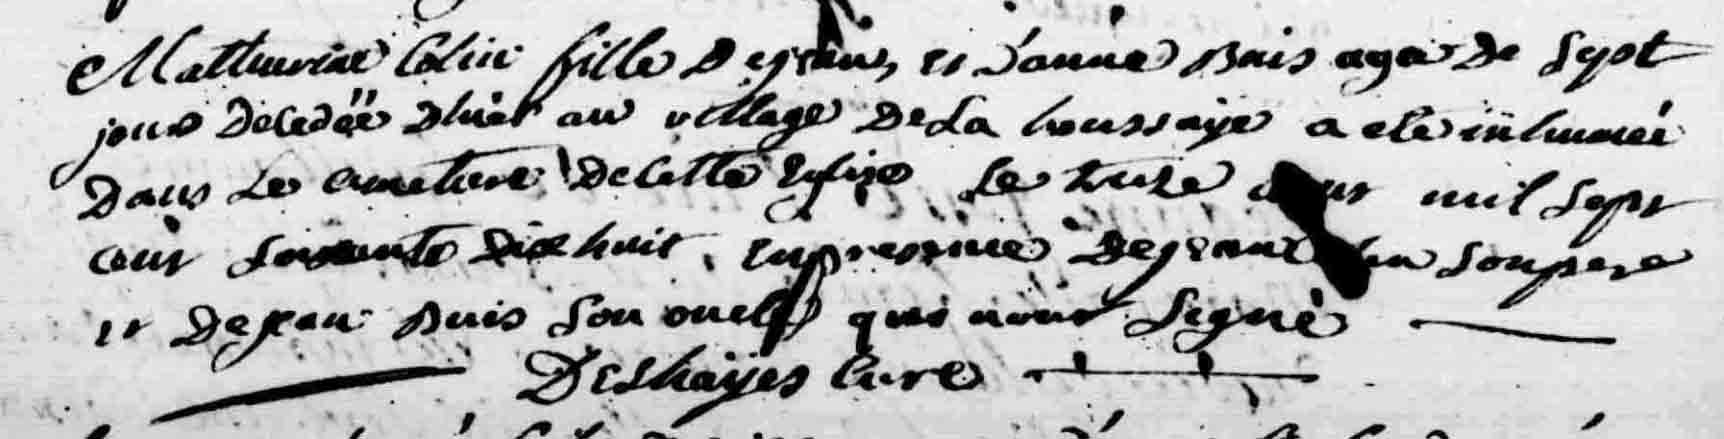 Mathurine Colin fille Dejean, et Janne Buis agee De Sept
jours Decedëe D'hier au village De La houssaye a ete inhumée
Dans Le Cimetiere De Cette Eglise Le treze mil Sept
cent Soixante Dix huit. En presence De jean Son pere
et De jean Buis Son oncle qui n'ont Signé
Deshayes Curé